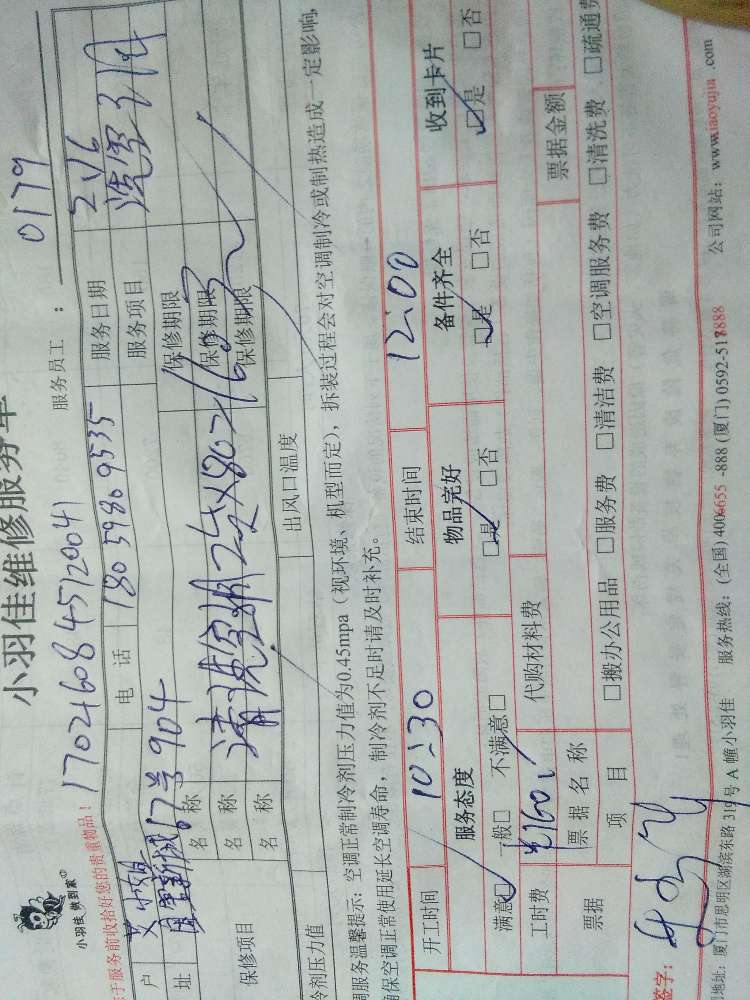 小羽佳 做到家
小羽佳维修服务单
于服务前收拾好您的贵重物品！
1702160845120041
服务员工： 0179
户
电 话 18059809535
服务日期 2 1/6
址 17号904
服务项目 洗空调
保修项目
名 称
保修期限
名 称 清洗空调2台×80=160元
保修期限
名 称
保修期限
冷剂压力值
出风口温度
调服务温馨提示：空调正常制冷剂压力值为0.45mpa（视环境、机型而定），拆装过程会对空调制冷或制热造成一定影响，
确保空调正常使用延长空调寿命，制冷剂不足时请及时补充。
开工时间 10:30 结束时间 12:00
服务态度 物品完好 备件齐全 收到卡片
满意☑ 一般□ 不满意□ ☑是 □否 ☑是 □否 ☑是 □否
工时费 160 代购材料费
票据 票 据 名 称 票据金额
项 目 □搬办公用品 □服务费 □清洁费 □空调服务费 □清洗费 □疏通费
签字：
地址：厦门市思明区湖滨东路 319号 A 幢小羽佳 服务热线：(全国) 4006655 -888 (厦门) 0592-5188888 公司网站：www.xiaoyujia .com